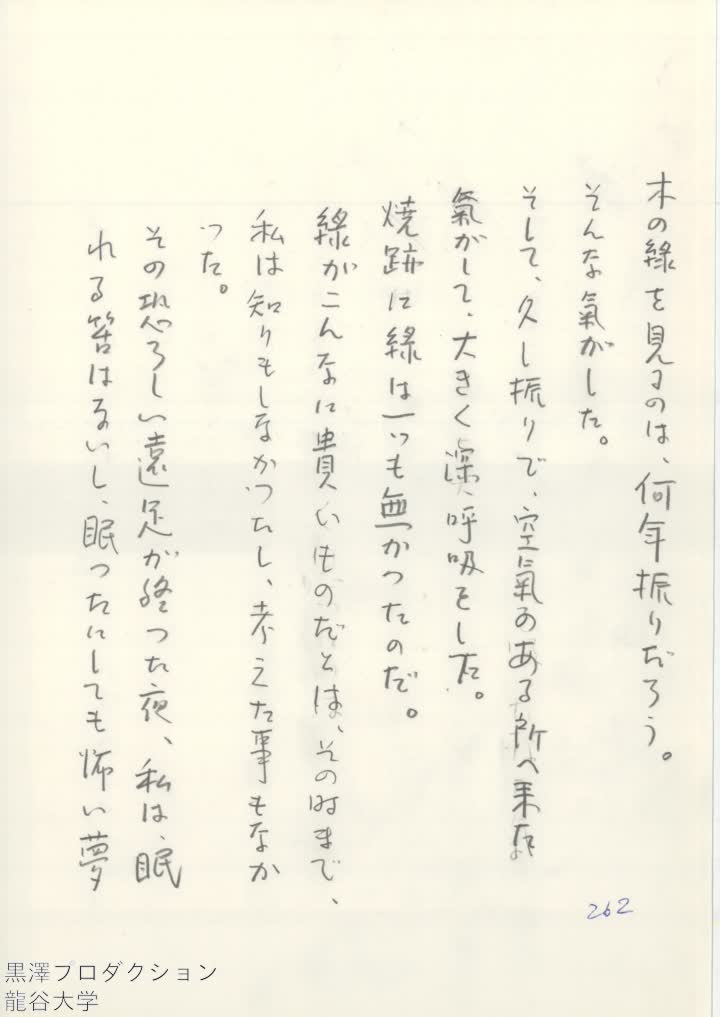 木の綠を見るのは、何年振りだろう。
そんな氣がした。
そして、久し振りで、空氣のある所へ来た
氣がして、大きく深呼吸をした。
焼跡に綠は一つも無かつたのだ。
綠がこんなに貴いものだとは、その時まで、
私は知りもしなかつたし、考えた事もなか
った。
その恐ろしい遠足が終つた夜、私は、眠
れる筈はないし、眠つたにしても怖い夢
262
黒澤プロダクション
龍谷大学